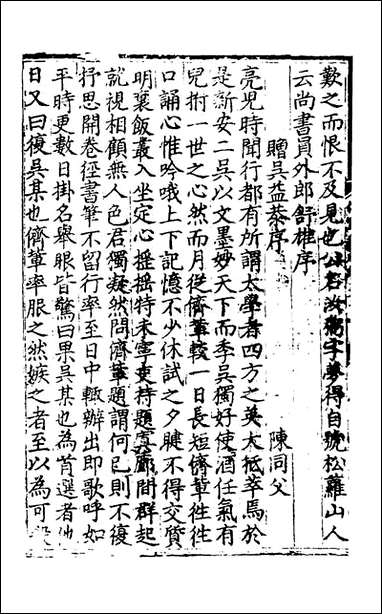 歎之而恨不及見也公名汝
字夢得自號松蘿山人
云尚書員外郎舒雄序
贈吳益恭序 陳同父
亮兒時聞行都有所謂太學者四方之英大抵萃焉於
是新安二吳以文墨妙天下而季吳獨好使酒任氣有
兒拊一世之心然而月從儕輩較一日長短儕輩徃徃
口誦心惟吟哦上下記憶不少休試之夕睫不得交質
明裹飯叢入坐定心搖搖特未寧吏持題
間群起
就視相顧無人色君獨凝然問儕輩題謂何已則不復
抒思開卷徑書筆不留行率至日中輒辦出即歌呼如
平時更數日掛名舉眼皆驚曰果吳某也為首選者他
日又曰復吳某也儕輩率服之然嫉之者至以為可